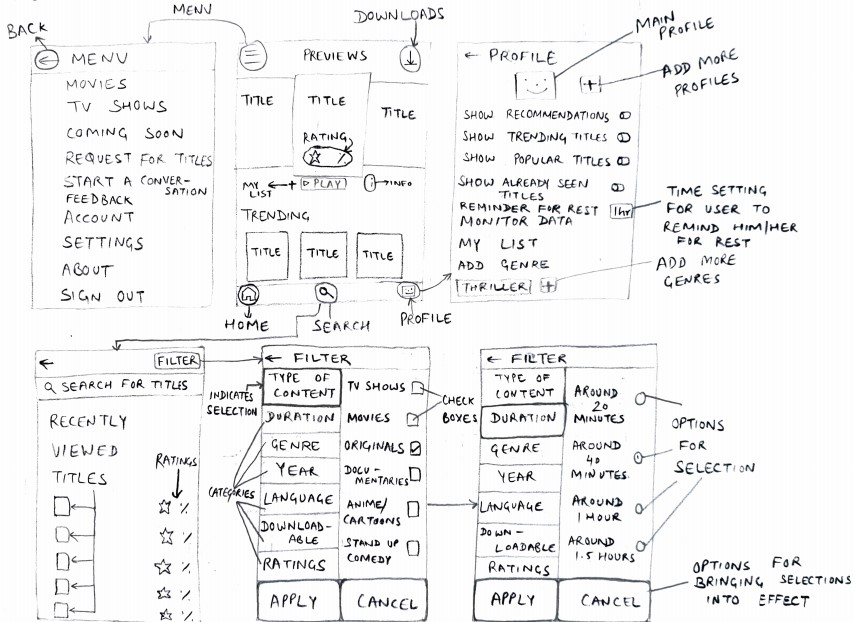 BACK
MENU
DOWNLOADS
← MENU
MOVIES
TV SHOWS
COMING SOON
REQUEST FOR TITLES
START A CONVER-
SATION
FEEDBACK
ACCOUNT
SETTINGS
ABOUT
SIGN OUT
PREVIEWS
TITLE
TITLE
TITLE
RATING
☆ %
MY
LIST
+
▷ PLAY
i
INFO
TRENDING
TITLE TITLE TITLE
HOME
SEARCH
PROFILE
← PROFILE
MAIN
PROFILE
+
ADD MORE
PROFILES
SHOW RECOMMENDATIONS
SHOW TRENDING TITLES
SHOW POPULAR TITLES
SHOW ALREADY SEEN
TITLES
REMINDER FOR REST 1hr
MONITOR DATA
MY LIST
ADD GENRE
THRILLER +
TIME SETTING
FOR USER TO
REMIND HIM/HER
FOR REST
ADD MORE
GENRES
← FILTER
SEARCH FOR TITLES
RECENTLY
VIEWED
TITLES
RATINGS
☆ %
☆ %
☆ %
☆ %
☆ %
INDICATES
SELECTION
CATEGORIES
← FILTER
TYPE OF
CONTENT
DURATION
GENRE
YEAR
LANGUAGE
DOWNLOAD-
ABLE
RATINGS
TV SHOWS
MOVIES
ORIGINALS
DOCU-
MENTARIES
ANIME/
CARTOONS
STAND UP
COMEDY
APPLY CANCEL
CHECK
BOXES
← FILTER
TYPE OF
CONTENT
DURATION
GENRE
YEAR
LANGUAGE
DOWN-
LOADABLE
RATINGS
AROUND
20
MINUTES
AROUND
40
MINUTES
AROUND
1 HOUR
AROUND
1.5 HOURS
APPLY CANCEL
OPTIONS
FOR
SELECTION
OPTIONS FOR
BRINGING SELECTIONS
INTO EFFECT